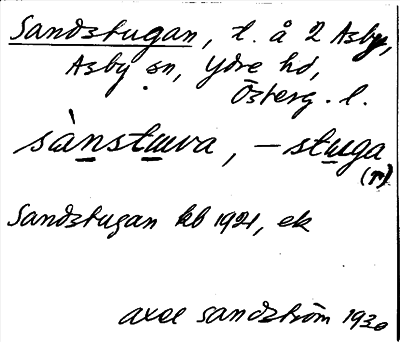 Sandstugan, t. å 2 Asby,
Asby sn, Ydre hd,
Österg. l.
sànstuva, – stuga
(r)
Sandstugan kb 1921, ek
Axel Sandström 1930